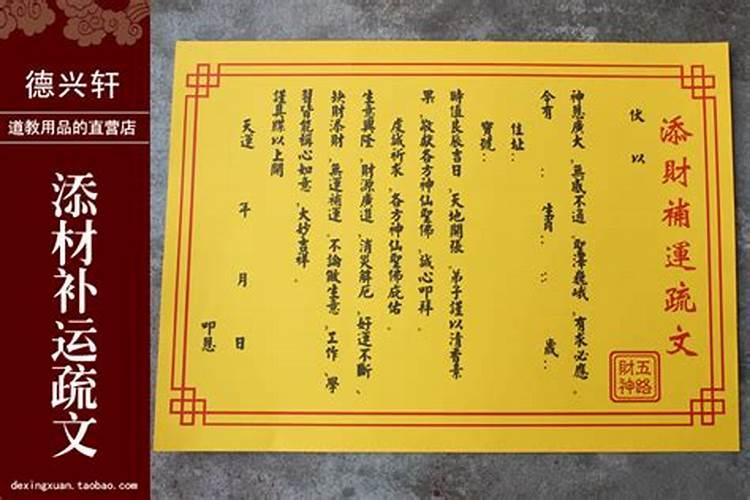 德兴轩
道教用品的直营店
添材补运疏文
dexingxuan.taobao.com
添財補運疏文
五路
財神
伏以
神恩廣大、無感不通、聖澤巍峨、有求必應。
今有 ： 生肖 ： ： 歲：
住址：
寶號：
時值良辰吉日、天地開張、弟子謹以清香素
果、敬獻各方神仙聖佛、誠心叩拜。
虔誠祈求、各方神仙聖佛庇佑。
生意興隆、財源廣進、消災解厄、好運不斷、
缺財添財、無運補運、不論做生意、工作、學
習皆能稱心如意、大妙吉祥。
謹具牒以上聞
天運 年 月 日
叩恩